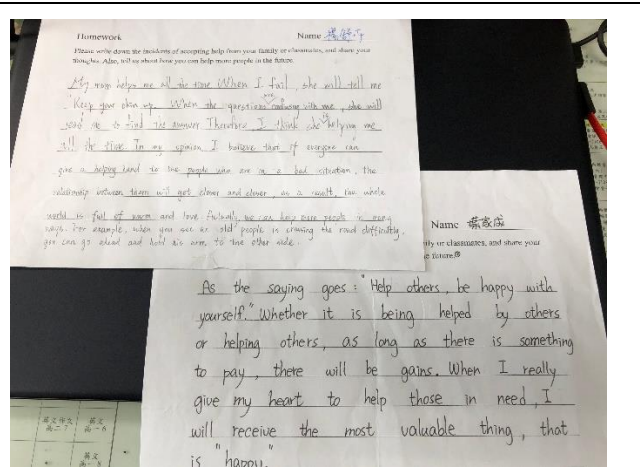 Homework
Name
Please write down the incidents of accepting help from your family or classmates, and share your
thoughts. Also, tell us about how you can help more people in the future.
My mom helps me all the time. When I fail, she will tell me
"Keep your chin up. When the questions confusing with me, she will
are
me to find the answer Therefore I think she helping me
is
all the time In my opinion I believe that if everyone can
give a helping hand to the people who are in a bad situation, the
relationship between them will get closer and closer, as a result, the whole
world is full of warm and love Actually, we can help more people in many
ways. For example, when you see an old people is crossing the road difficultly,
you can go ahead and hold his arm to the other side.
Name 葉家成
ily or classmates, and share your
e future.
As the saying goes: "Help others, be happy with
yourself." Whether it is being helped by others
or helping others, as long as there is something
to pay, there will be gains. When I really
give my heart to help those in need, I
will receive the most valuable thing, that
is "happy."
英文作文
高二7
英文
高一6
英文